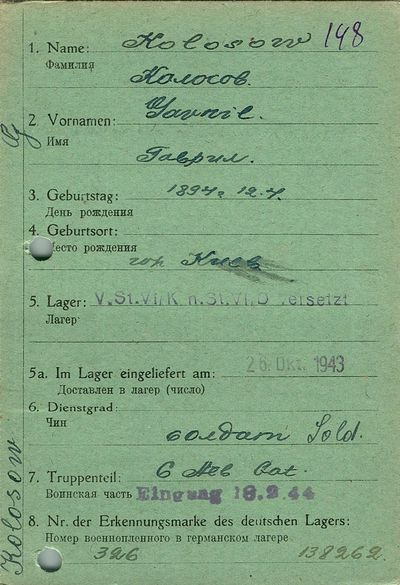 148
1. Name: Kolosow
Фамилия
Колосов.
2. Vornamen: Gavril.
Имя
Гаврил.
3. Geburtstag: 1894г 12.4.
День рождения
4. Geburtsort:
Место рождения
гор Киев
5. Lager: V.St.VI/K n.St.VI/D versetzt
Лагерь
5a. Im Lager eingeliefert am: 26. Okt. 1943
Доставлен в лагер (число)
6. Dienstgrad:
Чин
солдат Sold.
7. Truppenteil: 6
Воинская часть Eingang 18.2.44
8. Nr. der Erkennungsmarke des deutschen Lagers:
Номер военнопленного в германском лагере
326 138262.
Kolosow